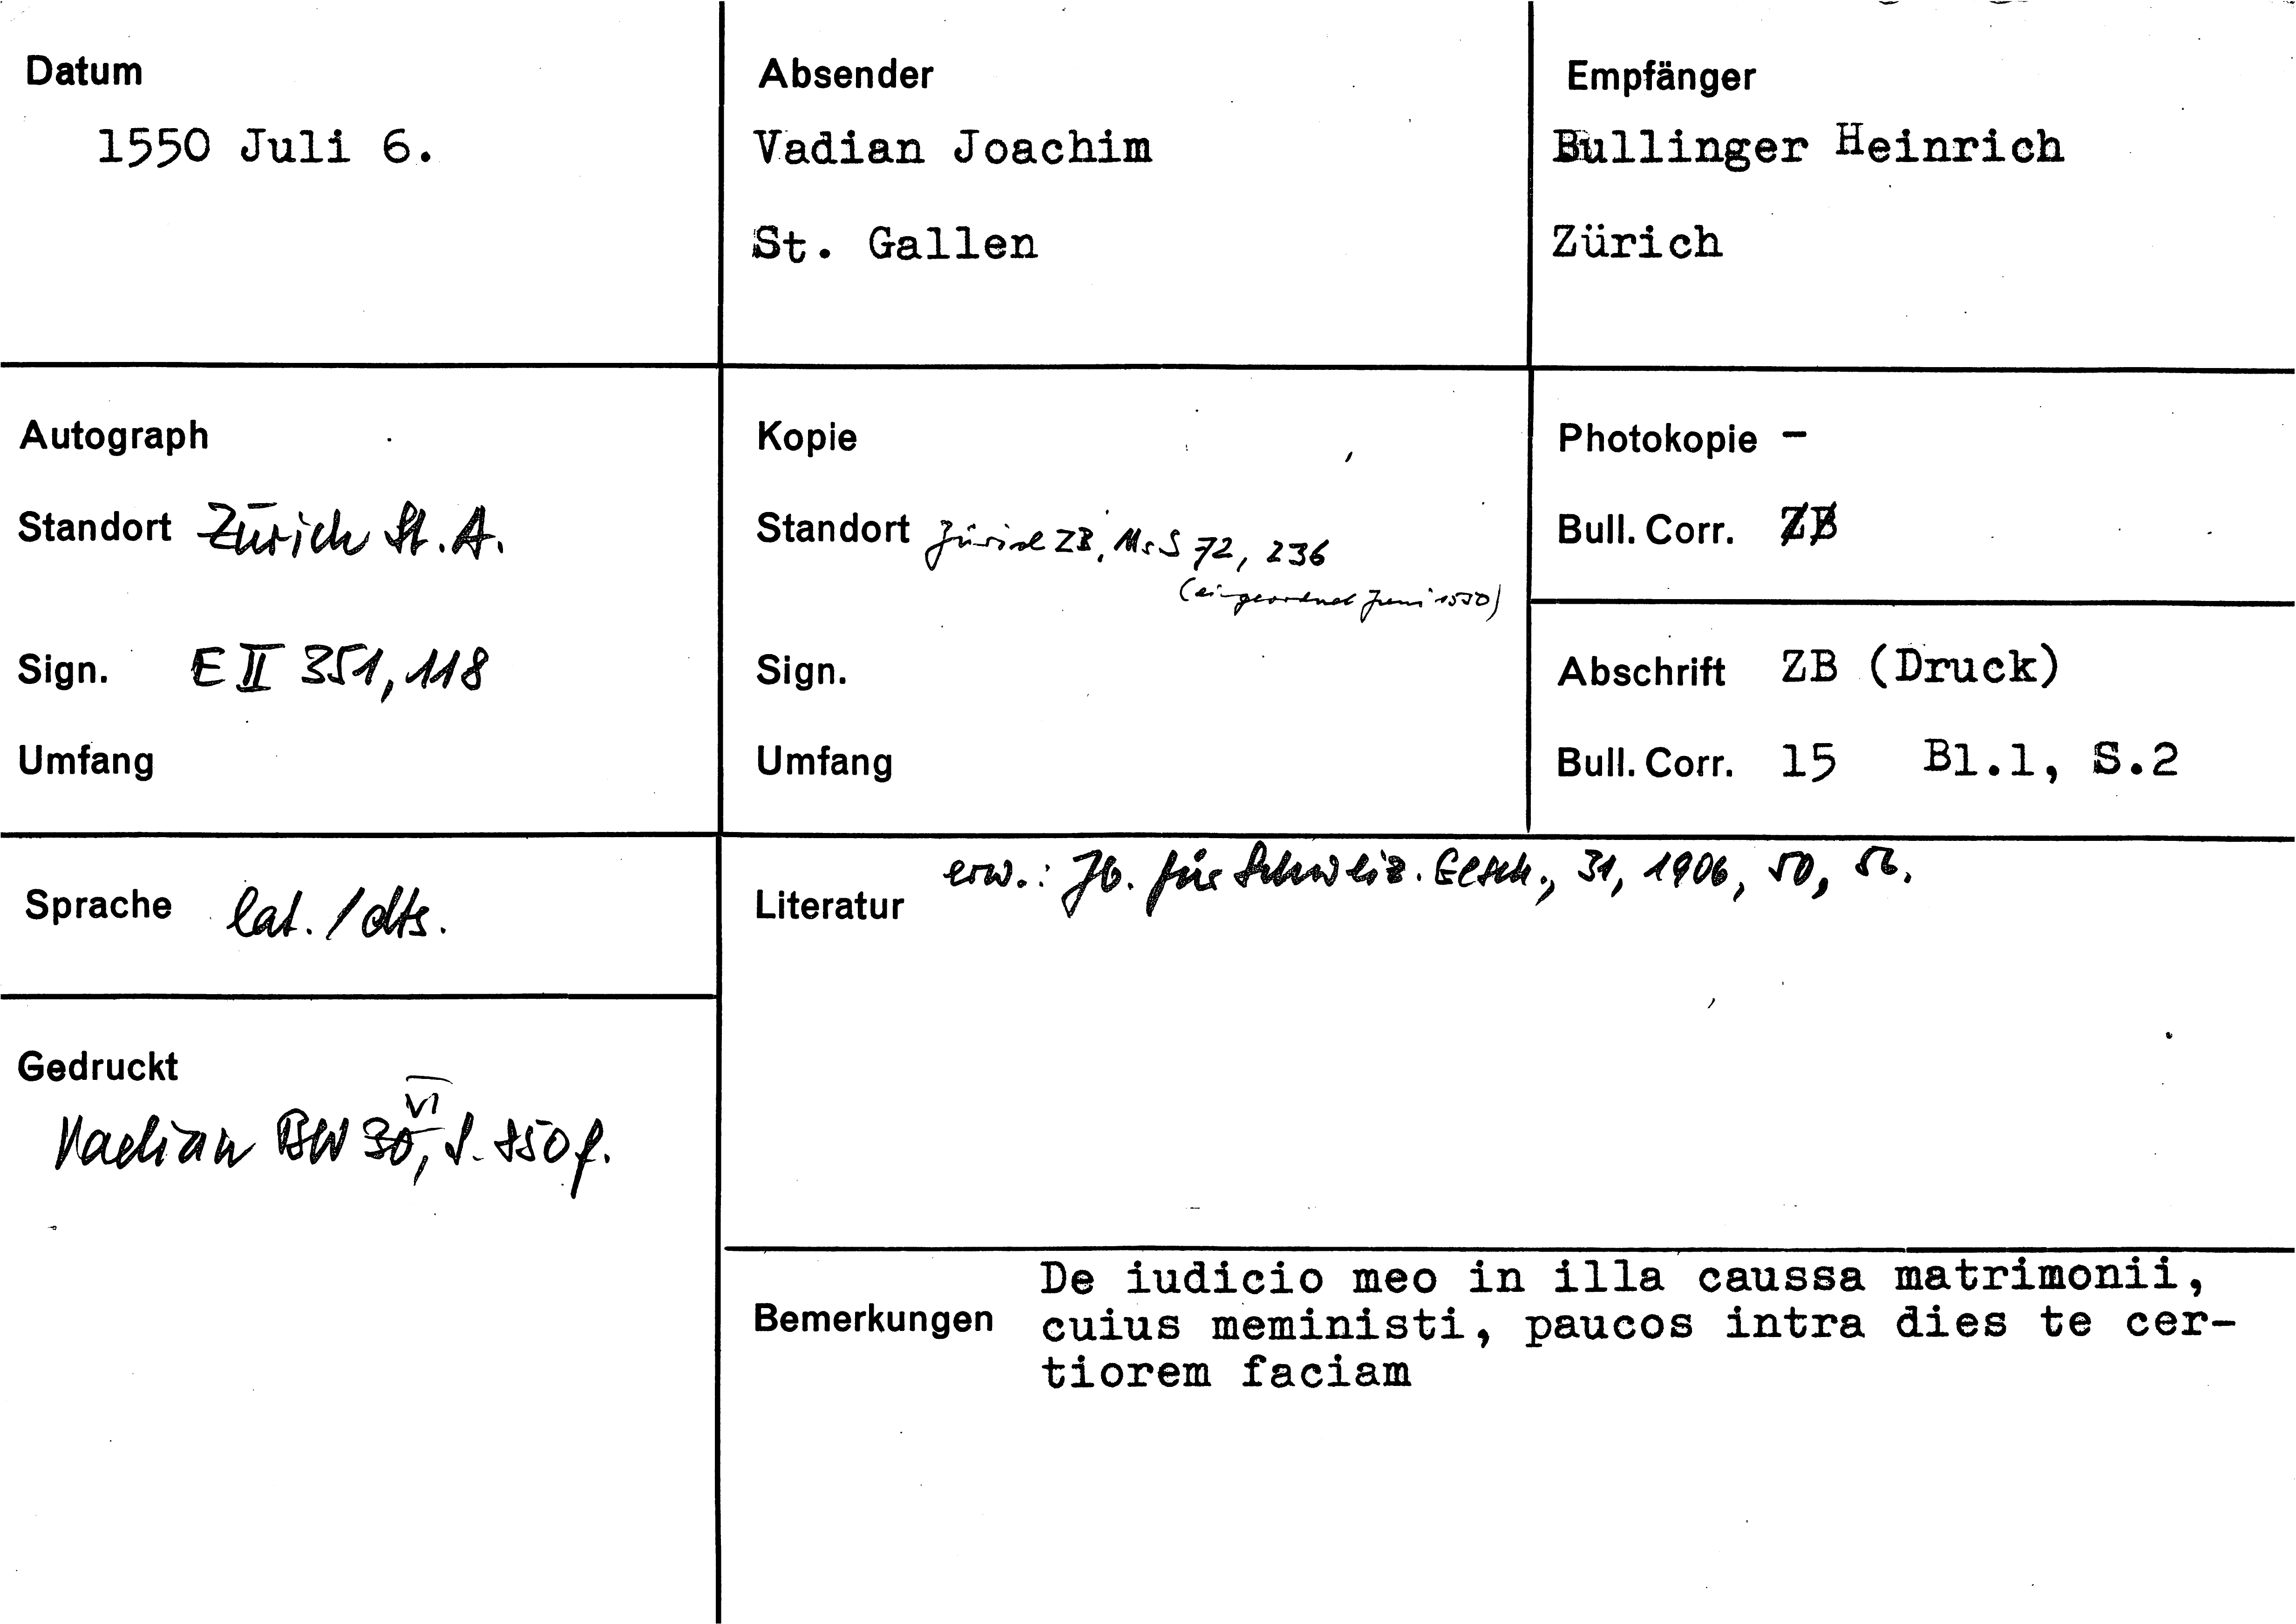 Datum
1550 Juli 6.
Absender
Vadian Joachim
St. Gallen
Empfänger
Bullinger Heinrich
Zürich
Autograph
Standort Zürich St. A.
Sign. E II 351, 118
Umfang
Kopie
Standort Zürich ZB, Ms S 72, 236
(eingeordnet Juni 1550)
Sign.
Umfang
Photokopie –
Bull. Corr. ZB
Abschrift ZB (Druck)
Bull. Corr. 15 Bl.1, S.2
Sprache lat. / dts.
Literatur erw.: Jb. für Schweiz. Gesch., 31, 1906, 50, 56.
Gedruckt
VI
Vadian BW 30, S. 850 f.
Bemerkungen De iudicio meo in illa caussa matrimonii,
cuius meministi, paucos intra dies te cer-
tiorem faciam